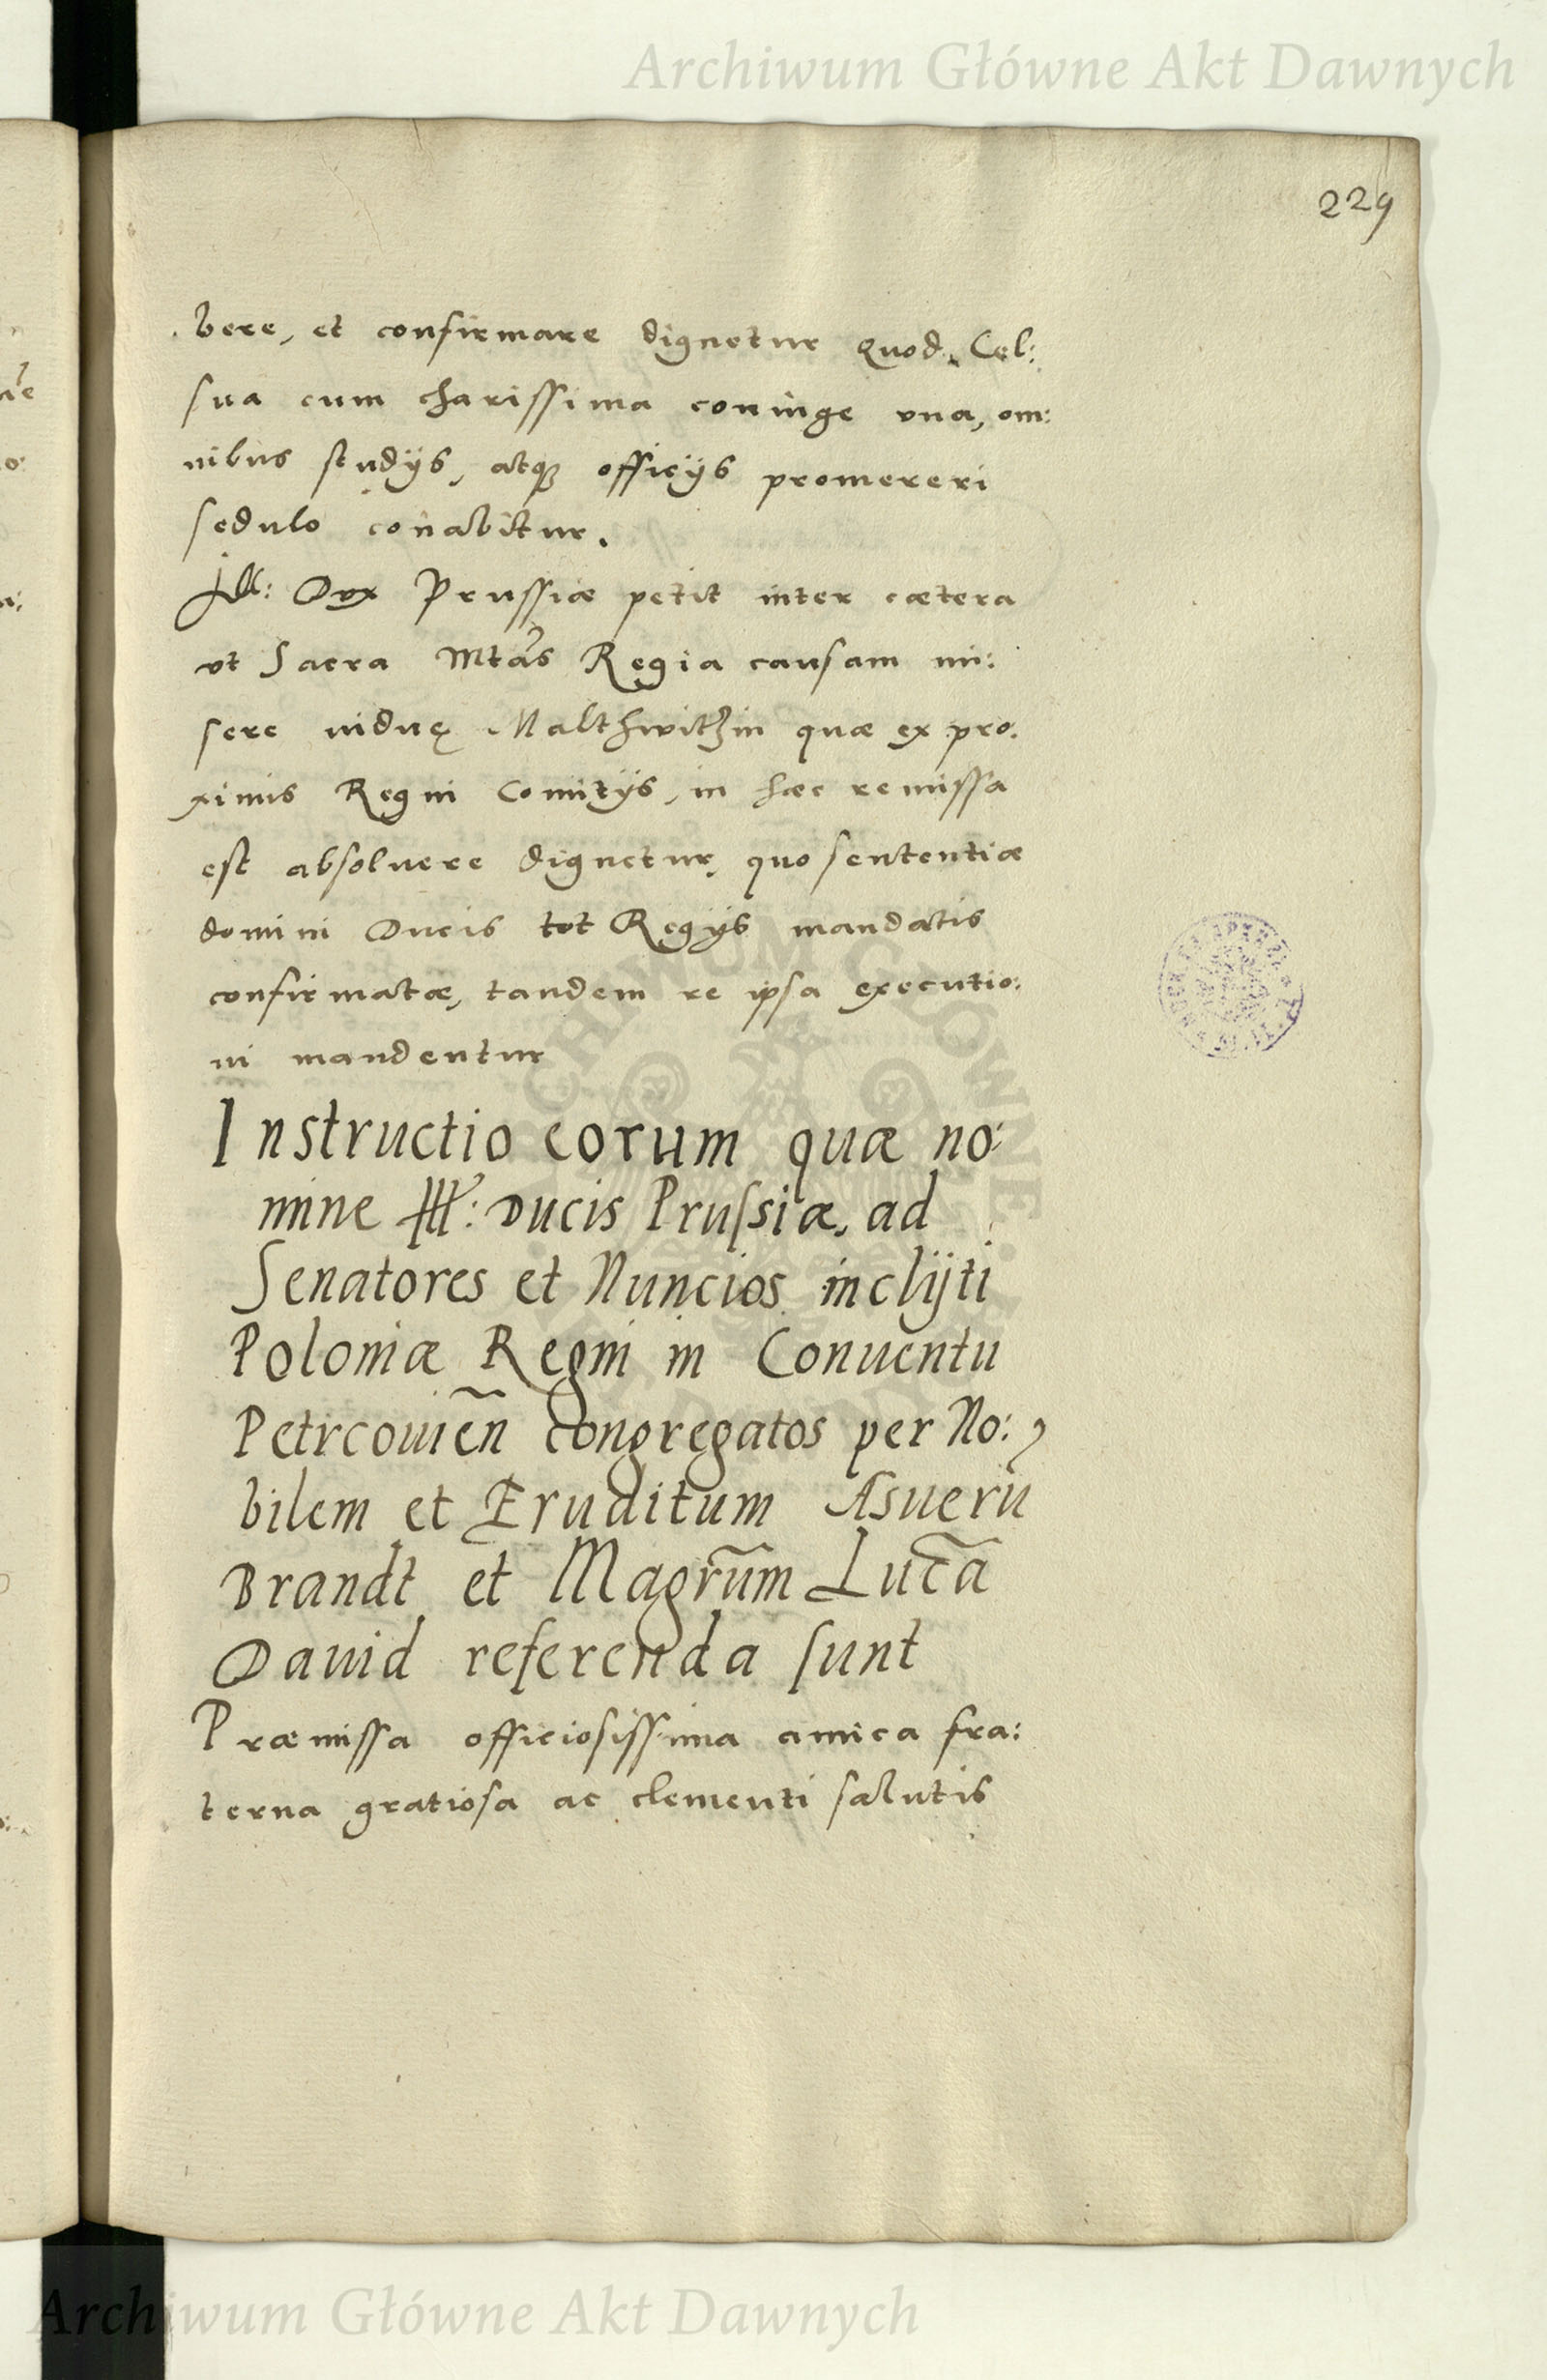 Archiwum Główne Akt Dawnych
229
bere, et confirmare dignetur quod Cel:
sua cum charissima coniuge vna, om:
nibus studijs, atq; officijs promereri
sedulo conabitur.
Ill: Dux Prussiæ petit inter cætera
vt Sacra Mtas Regia causam mi:
sere uiduę Malthwitzin quæ ex pro:
ximis Regni Comitijs, in hæc remissa
est absoluere dignetur, quo sententiæ
domini Ducis tot Regijs mandatis
confirmatæ, tandem re ipsa executio:
ni mandentur
Instructio eorum quæ no:
mine Ill: Ducis Prussiæ, ad
Senatores et Nuncios inclijti
Poloniæ Regni in Conuentu
Petrcouien̄ congregatos per No:
bilem et Eruditum Asuerū
Brandt et Magr̄um Lucā
Dauid referenda sunt
Præmissa officiosissima amica fra:
terna gratiosa ac clementi salutis
Archiwum Główne Akt Dawnych